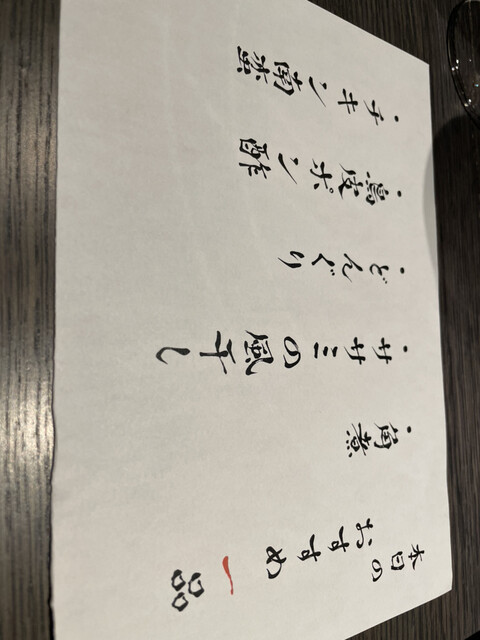 本日の
おすすめ
一品
・角煮
・ササミの風干し
・どんぐり
・鳥皮ポン酢
・チキン南蛮